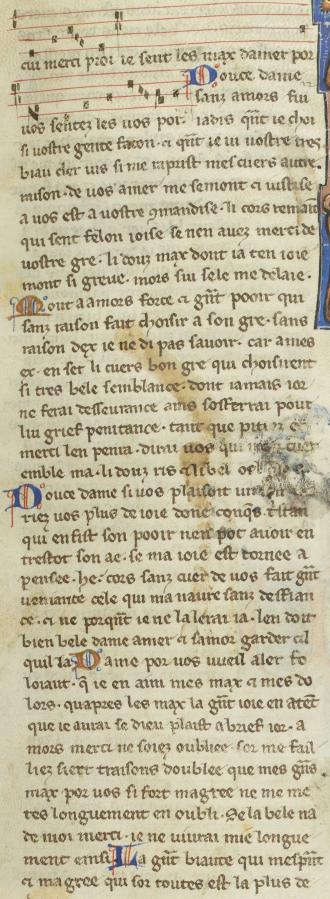 cui merci proi ie sent les max damer por
Douce dame
sanz amors fui
uos sentez les uos por iadis qnt ie choi
si uostre gente facon. ci qnt ie ui uostre tres
biau cler uis si me raprist mes cuers autre
raison. de uos amer me semont ci iustise
a uos est a uostre 9mandise. li cors remaint
qui sent felon ioise se nen auez merci de
uostre gre. li douz max dont ia ten ioie
mont si greue. mors sui sele me delaie.
Mout a amors force ci gnt pooir qui
sanz raison fait choisir a son gre. sans
raison dex ie ne di pas sauoir. car a mes
ec en set li cuers bon gre qui choisirent
si tres bele semblance. dont iamais ior
ne ferai desseurance ains soferrai pour
liu grief penitance. tant que pitiez
merci len penra. dirai uos qui cuer
emble ma. li douz ris ci li bel
Douce dame si uos plaisoit un
riez uos plus de ioie done conqs. tristan
qui en fist son pooir nen pot auoir en
trestot son ae. se ma ioie est tornee a
pensee. he. cors sanz cuer de uos fait gnt
ueniance cele qui ma naure sanz deffian
ce. ci ne porqnt ie ne la lerai ia. len doit
bien bele dame amer ci samor garder cil
qui la Dame por uos uueil aler fo
loiant. q ie en aim mes max ci mes do
lors. quapres les max la gnt ioie en atent
que ie aurai se dieu plaist a brief ior. a
mors merci ne soiez oubliee. sor me fail
liez siert traisons doublee que mes gns
max por uos si fort magree ne me me
tes longuement en oubli. Se la bele na
de moi merci. ie ne uiurai mie longue
ment ensi La gnt biaute qui mesprit
ci magree qui sor toutes est la plus de